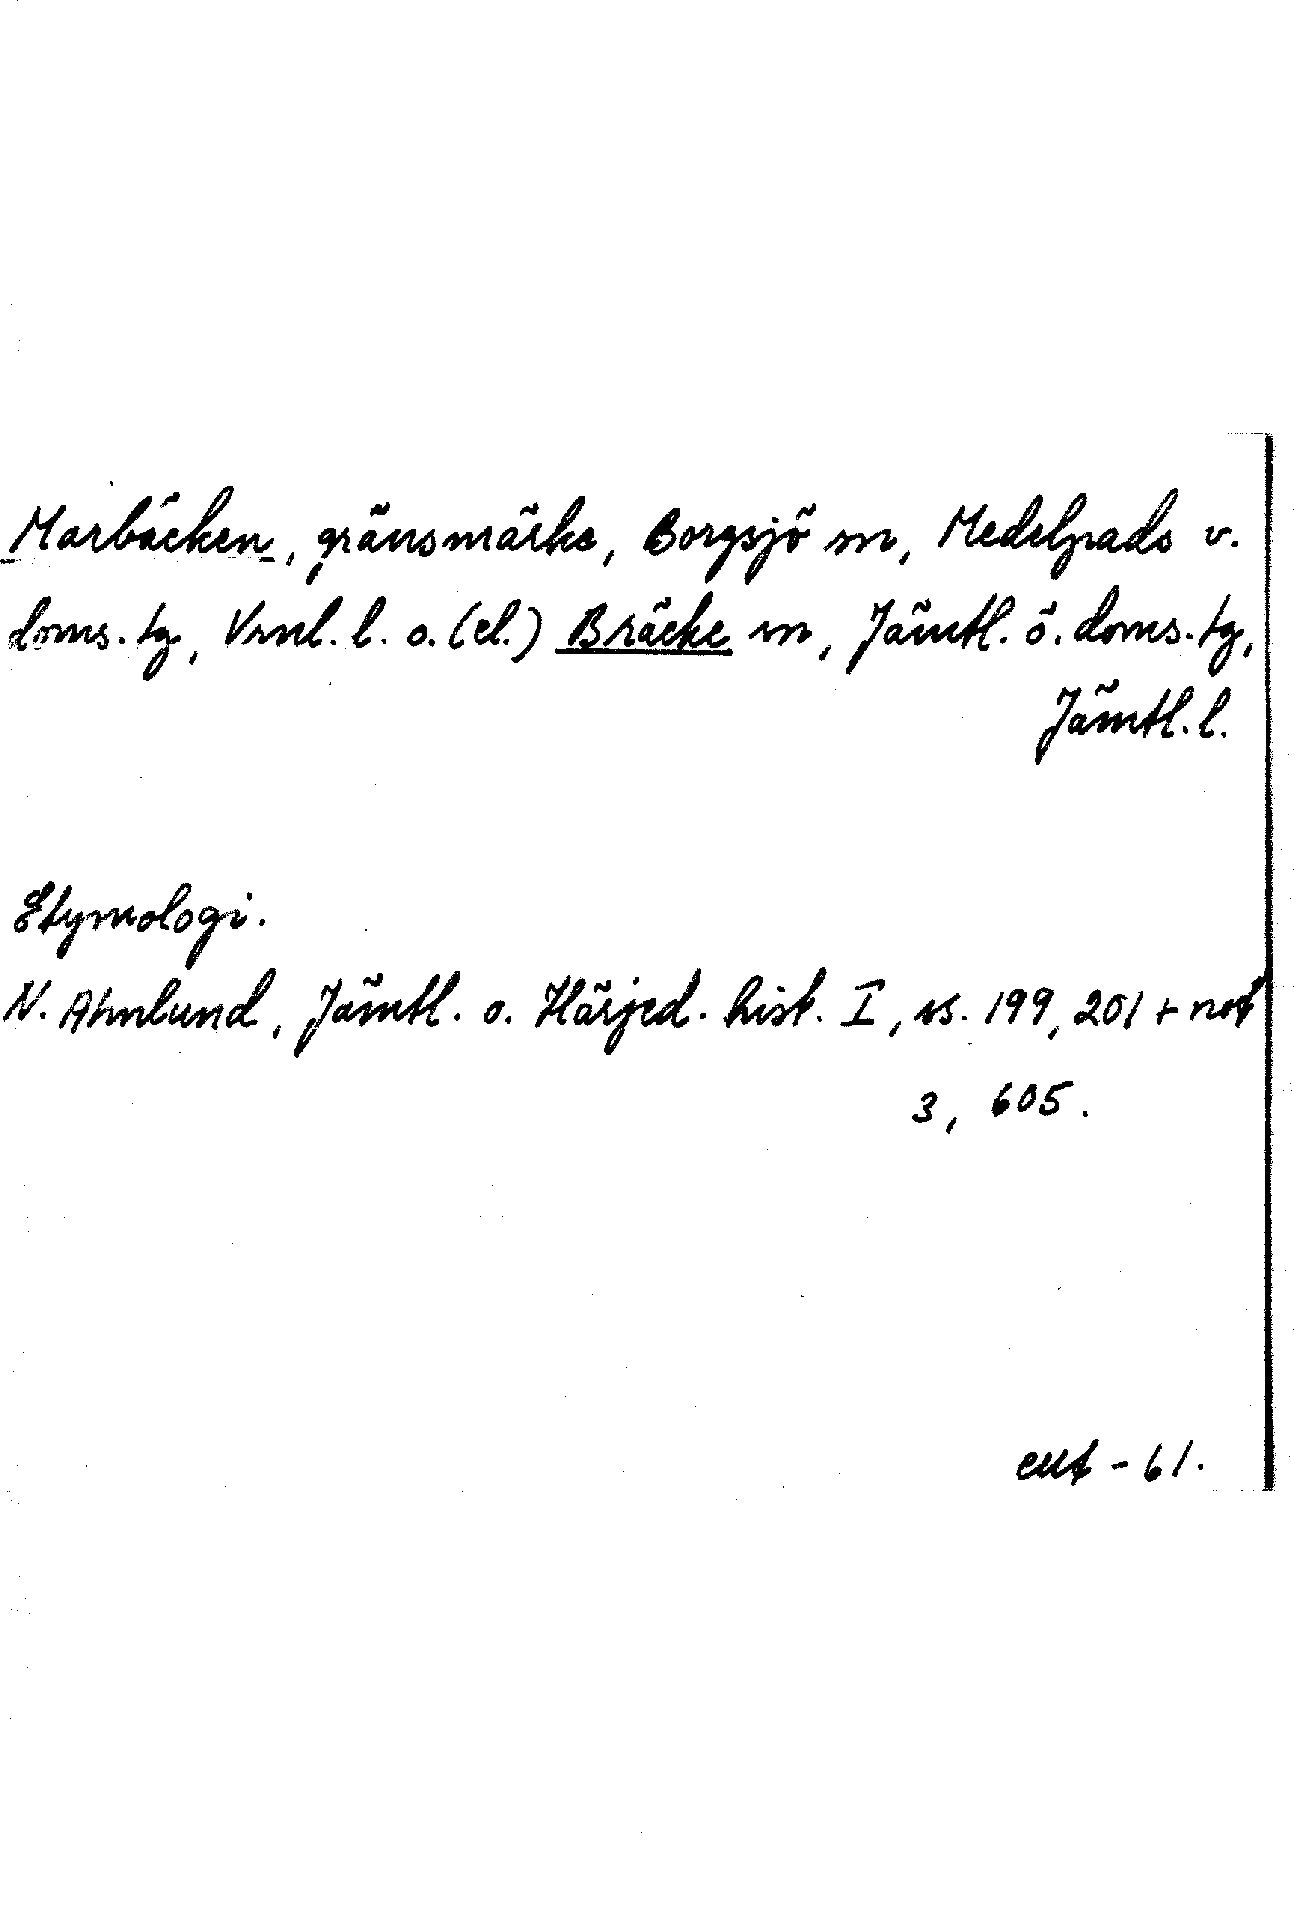 Marbäcken, gränsmärke, Borgsjö sn, Medelpads v.
doms. tg, Vrnl. l. o. (el.) Bräcke sn, Jämtl. ö. doms. tg,
Jämtl. l.
Etymologi.
N. Ahnlund, Jämtl. o. Härjed. hist. I, ss. 199, 201 + not
3, 605.
- 61.